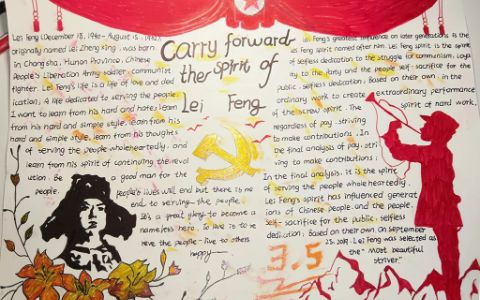 Carry forward
the spirit of
Lei Feng
Lei Feng (December 18, 1940 – August 15, 1962)
originally named Lei Zheng xing, was born
in Changsha, Hunan Province, Chinese
People's Liberation Army soldier, communist
fighter. Lei Feng's life is a life of love and ded
ication, A life dedicated to serving the people.
I want to learn from his hard and hate, learn
from his hard and simple style, learn from his
hard and simple style, learn from his thoughts
of serving the people wholeheartedly, and
learn from his spirit of continuing the revol
ution. Be a good man for the
people. people's lives will end but there is no
end to serving the people.
It's a great glory to become a
nameless hero. To live is to se
rve the people - live to others
happy
Lei Feng's greatest influence on later generations is the
Lei Feng spirit named after him. Lei Feng spirit is the spirit
of selfless dedication to the struggle for communism, loya
lty to the party and the people, self-sacrifice for the
public, selfless dedication; Based on their own, in the
ordinary work to create extraordinary performance
of the screw spirit. The spirit of hard work,
regardless of pay, striving
to make contributions; In
the final analysis of pay, stri
ving to make contributions;
In the final analysis, it is the spirit
of serving the people wholeheartedly.
Lei Feng's spirit has influenced generat
ions of Chinese people. and the people,
self-sacrifice for the public, selfless
dedication; Based on their own. On September
25, 2019, Lei Feng was selected as
the "Most beautiful
striver."
3.5